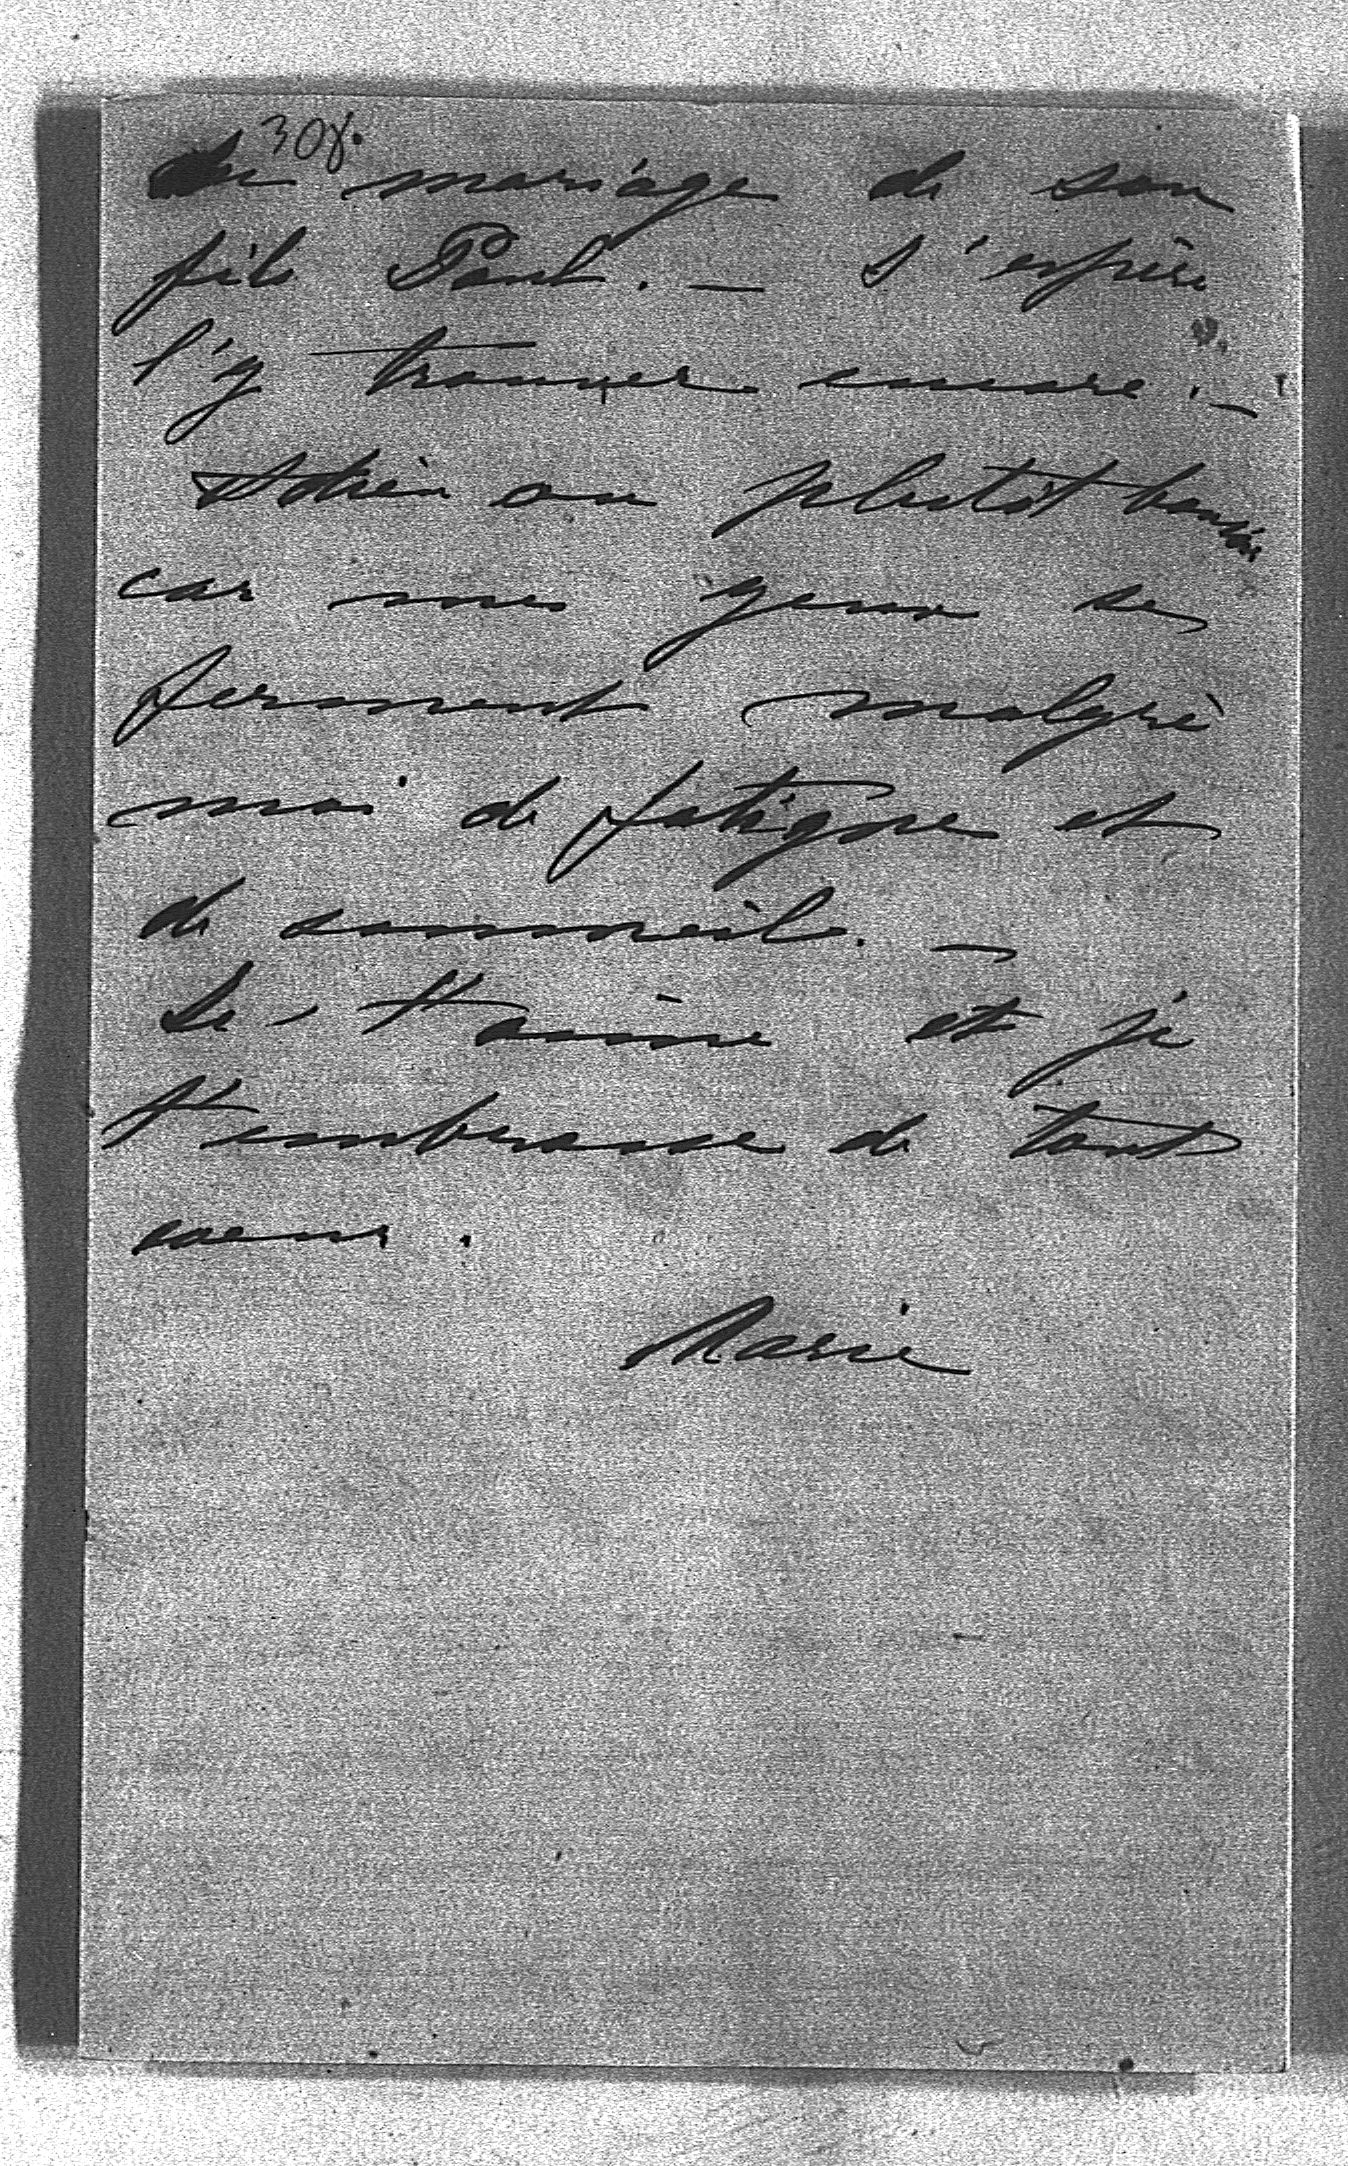 308.
du mariage de son
fils Paul. — J'espère
l'y trouver encore. —
Adieu ou plutôt bonsoir
car mes yeux se
ferment malgré
moi de fatigue et
de sommeil. —
Je t'aime et je
t'embrasse de tout
coeur.
Marie